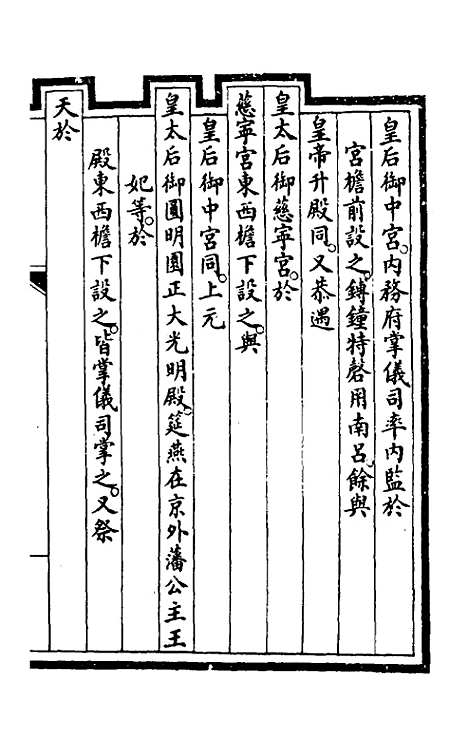 皇后御中宮。内務府掌儀司率内監於
宮檐前設之。鎛鐘特磬用南呂。餘與
皇帝升殿同。又恭遇
皇太后御慈寧宮。於
慈寧宮東西檐下設之。與
皇后御中宮同。上元
皇太后御圓明園正大光明殿。筵燕在京外藩公主王
妃等。於
殿東西檐下設之。皆掌儀司掌之。又祭
天於